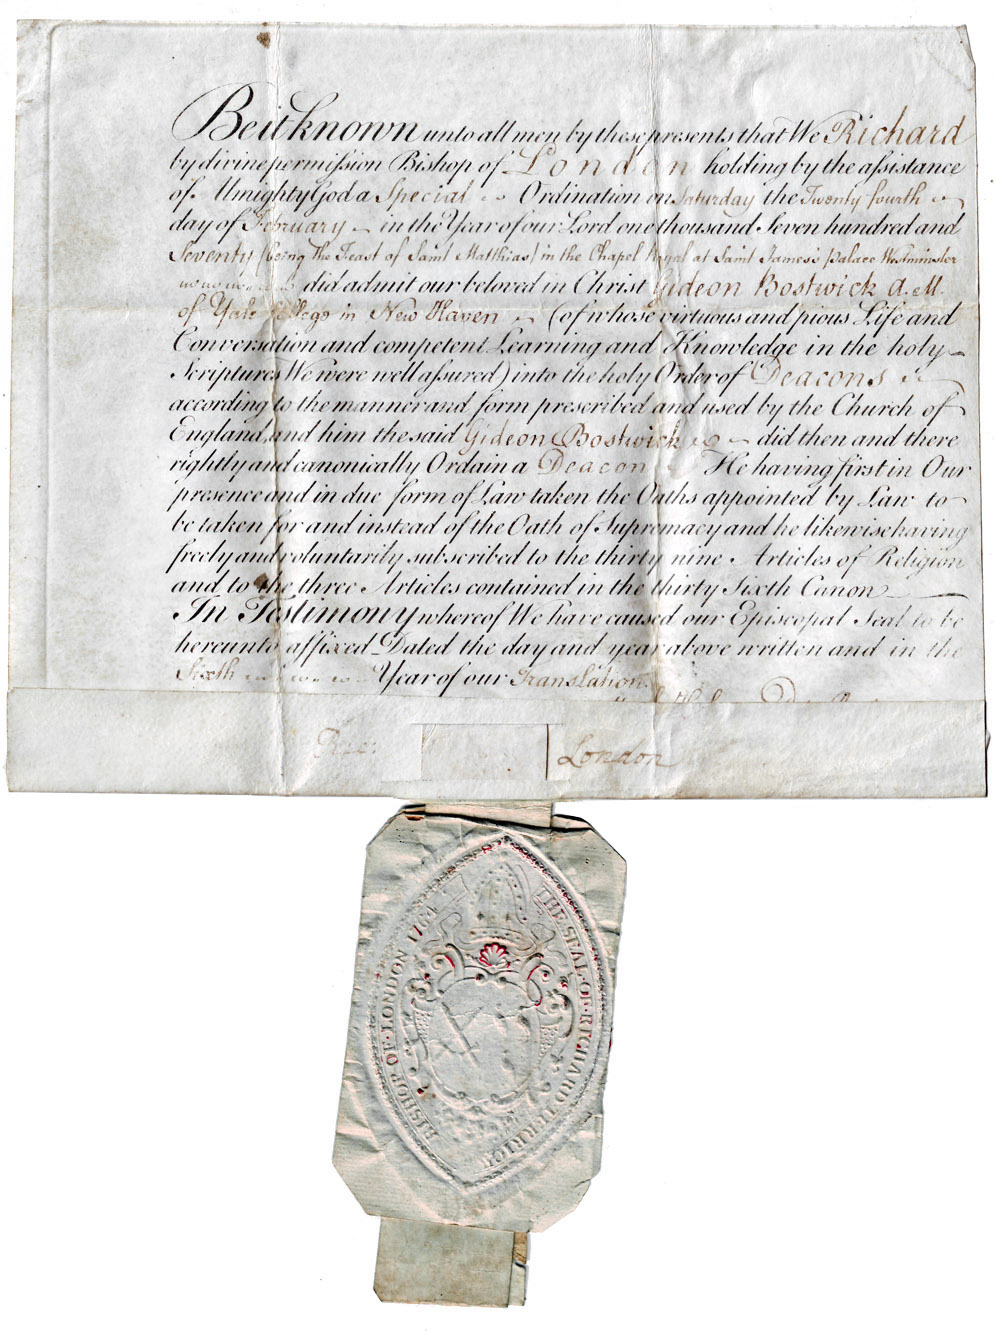 Be it known unto all men by these presents that We Richard
by divine permission Bishop of London holding by the assistance
of Almighty God a Special Ordination on Saturday the Twenty fourth
day of February in the Year of our Lord one thousand Seven hundred and
Seventy (being the Feast of Saint Matthias) in the Chapel Royal at Saint James's palace Westminster
did admit our beloved in Christ Gideon Bostwick A. M.
of Yale College in New Haven (of whose virtuous and pious Life and
Conversation and competent Learning and Knowledge in the holy
Scriptures We were well assured) into the holy Order of Deacons
according to the manner and form prescribed and used by the Church of
England, and him the said Gideon Bostwick did then and there
rightly and canonically Ordain a Deacon He having first in Our
presence and in due form of Law taken the Oaths appointed by Law to
be taken for and instead of the Oath of Supremacy and he likewise having
freely and voluntarily subscribed to the thirty nine Articles of Religion
and to the three Articles contained in the thirty Sixth Canon
In Testimony whereof We have caused our Episcopal Seal to be
hereunto affixed Dated the day and year above written and in the
Sixth Year of our Translation.
London
THE SEAL OF RICHARD TERRICK
BISHOP OF LONDON 1764